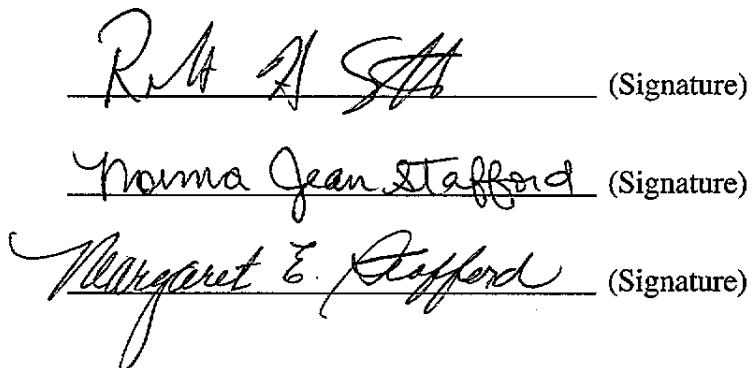 (Signature)
Norma Jean Stafford (Signature)
Margaret E. Stafford (Signature)